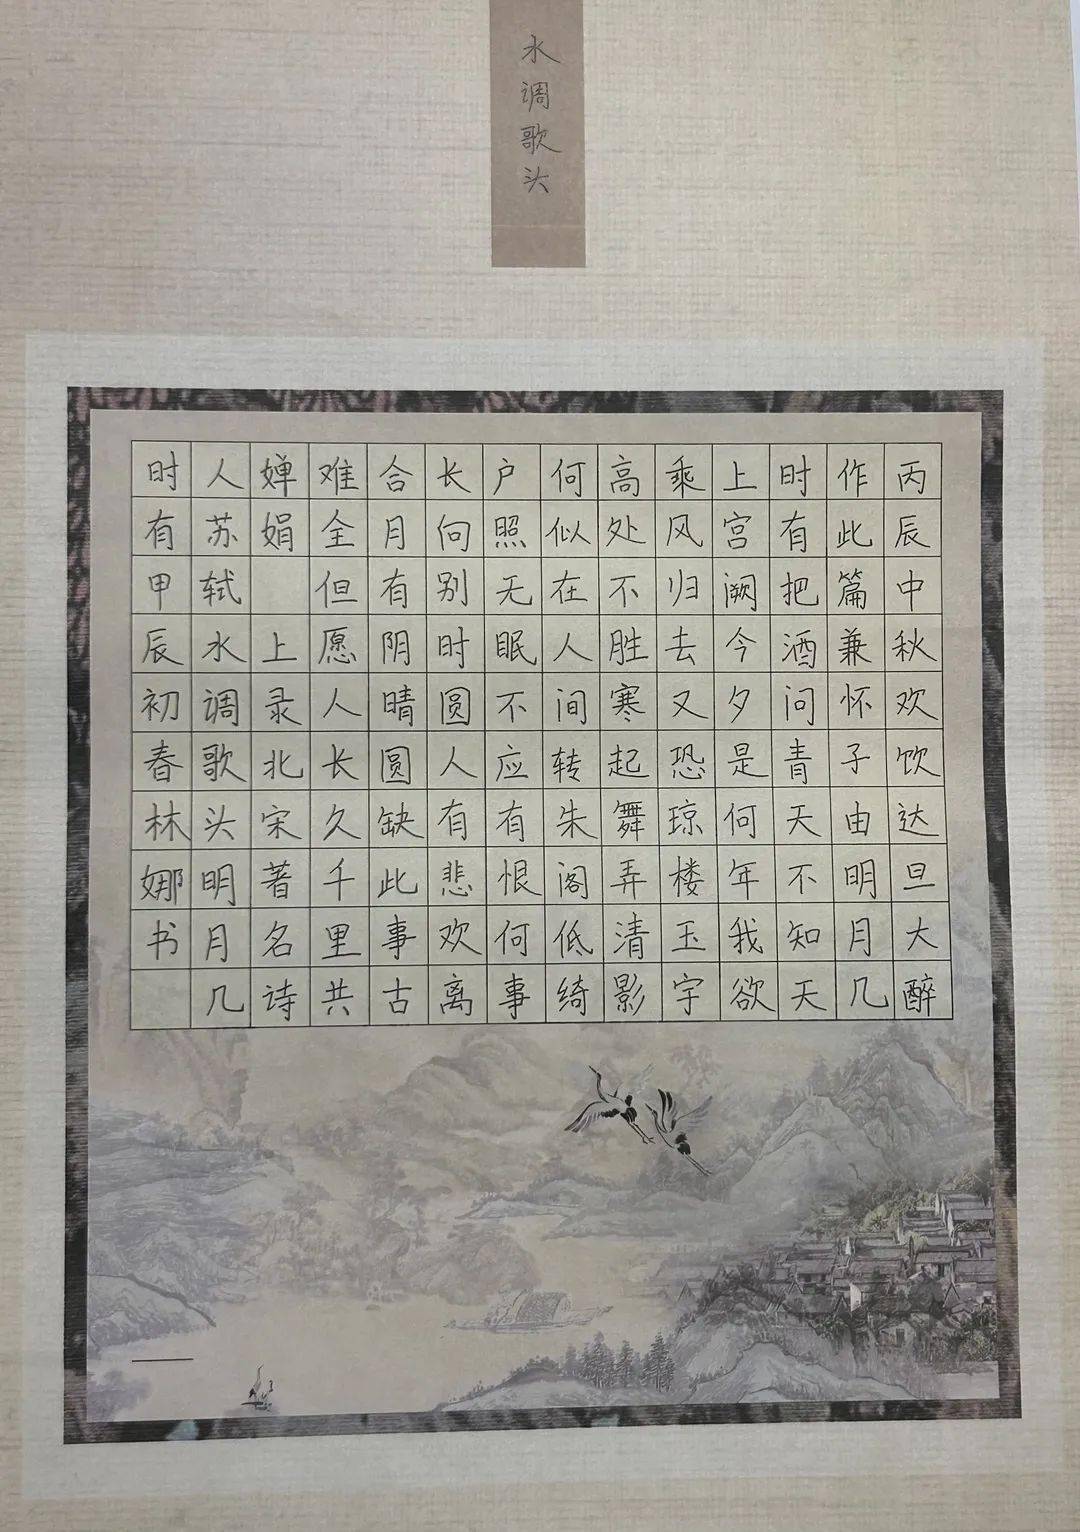 水调歌头
丙辰中秋欢饮达旦大醉
作此篇兼怀子由明月几
时有把酒问青天不知天
上宫阙今夕是何年我欲
乘风归去又恐琼楼玉宇
高处不胜寒起舞弄清影
何似在人间转朱阁低绮
户照无眠不应有恨何事
长向别时圆人有悲欢离
合月有阴晴圆缺此事古
难全但愿人长久千里共
婵娟 上录北宋著名诗
人苏轼水调歌头明月几
时有甲辰初春林娜书